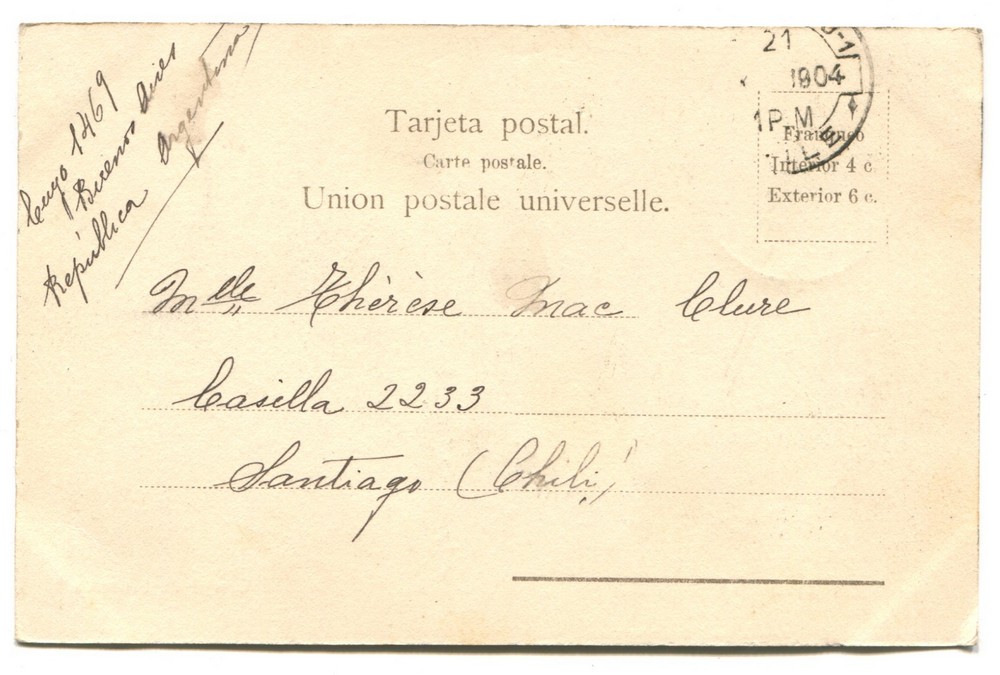 Cuyo 1469
Buenos Aires
República Argentina
21
1904
1 P.M
Tarjeta postal.
Carte postale.
Union postale universelle.
Franqueo
Interior 4 c
Exterior 6 c.
Mlle Thérèse Mac Clure
Casilla 2233
Santiago (Chili)